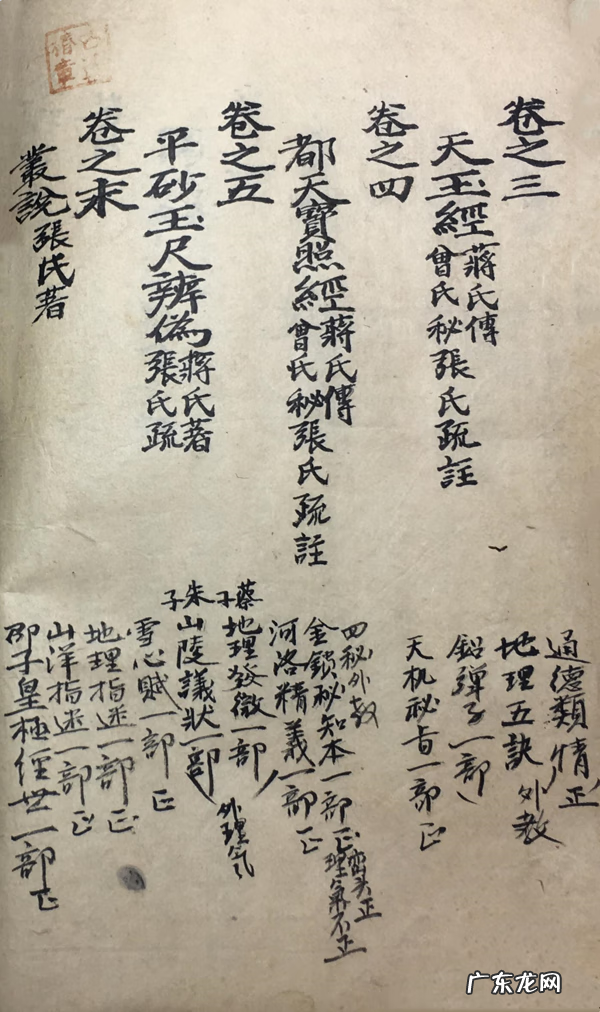 卷之三
天玉經 蔣氏傳 曾氏秘 張氏疏註
卷之四
都天寶照經 蔣氏傳 曾氏秘 張氏疏註
卷之五
平砂玉尺辨偽 蔣氏著 張氏疏
卷之末
叢說 張氏著
通德類情 正
地理五訣 外教
鉛彈子一部
天机秘旨一部 正
四秘外教
金鎖秘知本一部 正 巒头正 理氣不正
河洛精義一部 正
蔡子 地理發微一部 外理气
朱子 山陵議狀一部
雪心賦一部 正
地理指迷一部 正
山洋指迷一部 正
邵子皇極經世一部 正
广东龙网